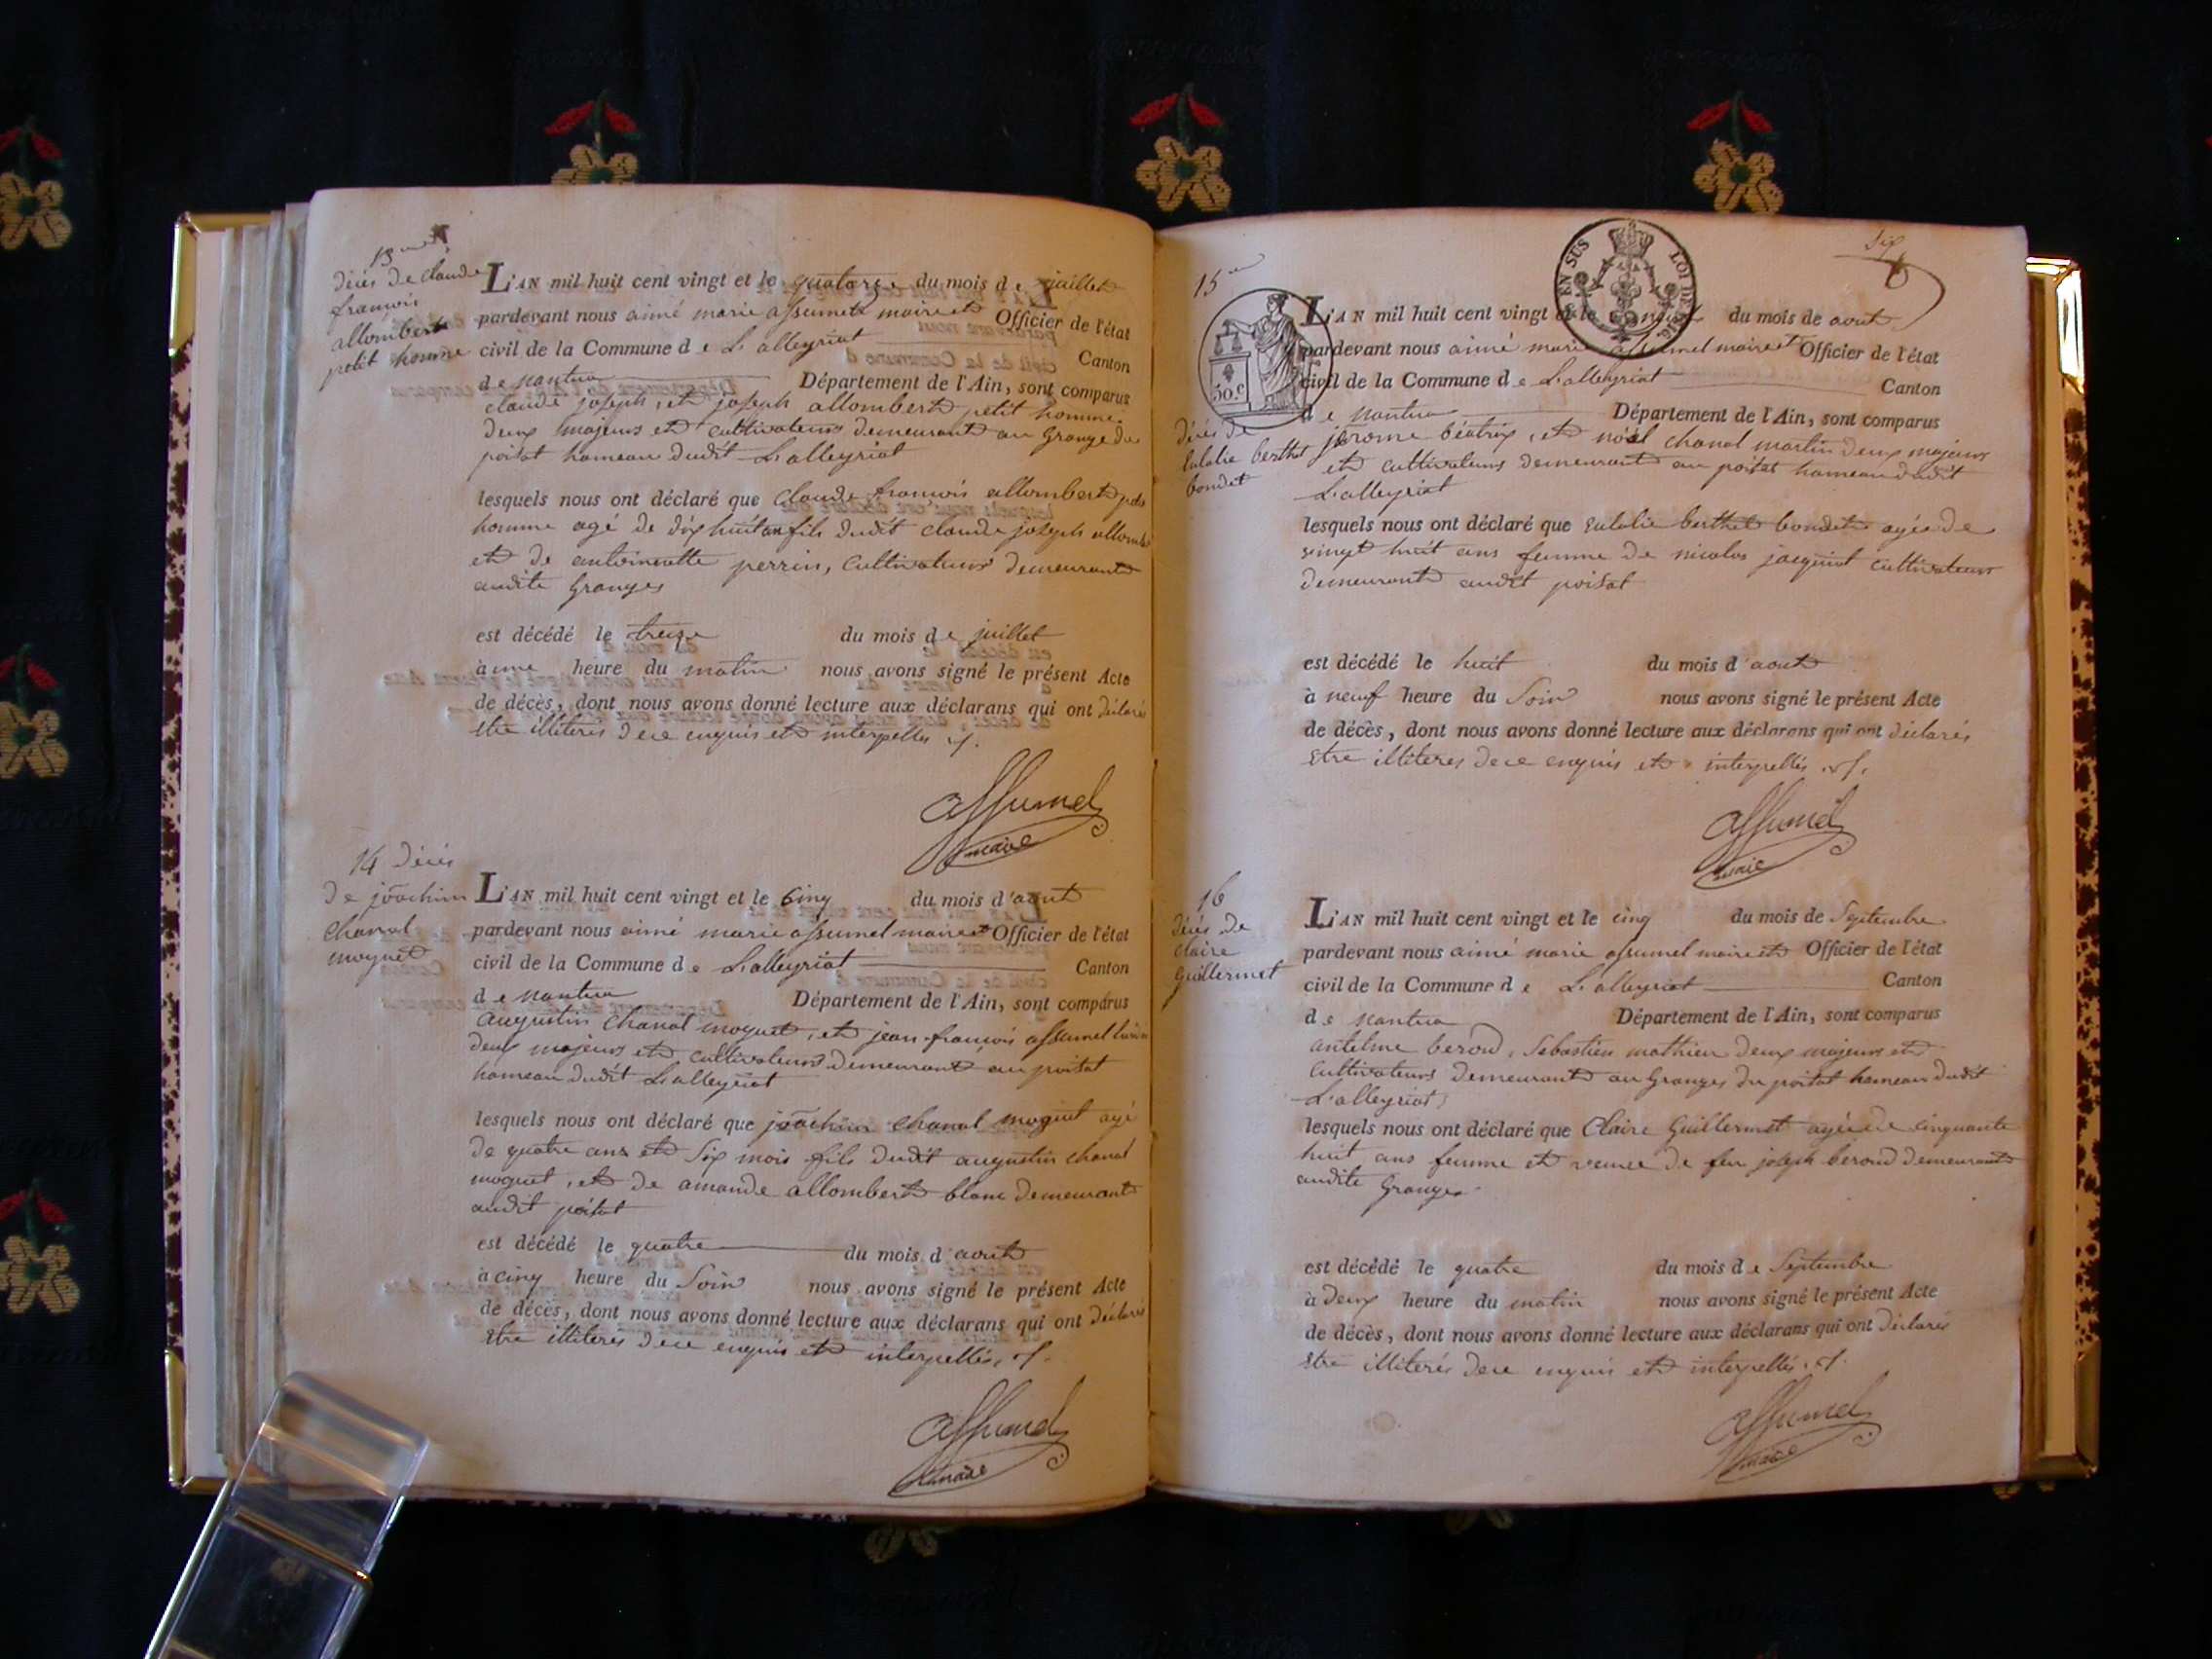 13
décés de claude
francois
allombert
petit homme
L'AN mil huit cent vingt et le quatorze du mois de juillet
pardevant nous aimé marie assumel maire et Officier de l'état
civil de la Commune de L'alleyriat Canton
de nantua Département de l'Ain, sont comparus
claude joseph, et joseph allombert petit homme
deux majeurs et cultivateurs demeurant au Grange du
poisat hameau dudit L'alleyriat
lesquels nous ont déclaré que Claude francois allombert petit
homme agé de dix huit an fils dudit claude joseph allombe
et de antoinette perrin, cultivateurs demeurant
audite Granges
est décédé le treize du mois de juillet
à une heure du matin nous avons signé le présent Acte
de décès, dont nous avons donné lecture aux déclarans qui ont déclarés
etre illiterés de ce enquis et interpellés
assumel
maire
14 décés
de joachim
chanal
moguet
L'AN mil huit cent vingt et le cinq du mois d'aout
pardevant nous aimé marie assumel maire et Officier de l'état
civil de la Commune de L'alleyriat Canton
de nantua Département de l'Ain, sont comparus
augustin chanal moguet, et jean francois assumel
deux majeurs et cultivateurs demeurant au poisat
hameau dudit L'alleyriat
lesquels nous ont déclaré que joachim chanal moguet agé
de quatre ans et six mois fils dudit augustin chanal
moguet, et de amande allombert blanc demeurant
audit poisat
est décédé le quatre du mois d'aout
à cinq heure du soir nous avons signé le présent Acte
de décès, dont nous avons donné lecture aux déclarans qui ont déclaré
etre illiterés de ce enquis et interpellés
assumel
maire
six
6
EN SUS LOI DE
50.c
15
décés de
Eulalie berthet
bondet
L'AN mil huit cent vingt et le neuf du mois de aout
pardevant nous aimé marie assumel maire et Officier de l'état
civil de la Commune de L'alleyriat Canton
de nantua Département de l'Ain, sont comparus
jérome béatrix, et noël chanal martin deux majeurs
et cultivateurs demeurant au poisat hameau dudit
L'alleyriat
lesquels nous ont déclaré que Eulalie berthet bondet agée de
vingt huit ans femme de nicolas jacquiot cultivateur
demeurant audit poisat
est décédé le huit du mois d'aout
à neuf heure du soir nous avons signé le présent Acte
de décès, dont nous avons donné lecture aux déclarans qui ont déclarés
etre illiteres de ce enquis et interpellés
assumel
maire
16
décés de
claire
Guillermet
L'AN mil huit cent vingt et le cinq du mois de Septembre
pardevant nous aimé marie assumel maire et Officier de l'état
civil de la Commune de L'alleyriat Canton
de nantua Département de l'Ain, sont comparus
antelme beroud, Sebastien mathieu deux majeurs et
cultivateurs demeurant au Granges du poisat hameau dudit
L'alleyriat
lesquels nous ont déclaré que Claire Guillermet agée de cinquante
huit ans femme et veuve de feu joseph beroud demeurant
audite Granges
est décédé le quatre du mois de Septembre
à deux heure du matin nous avons signé le présent Acte
de décès, dont nous avons donné lecture aux déclarans qui ont déclarés
etre illiterés de ce enquis et interpellés
assumel
maire